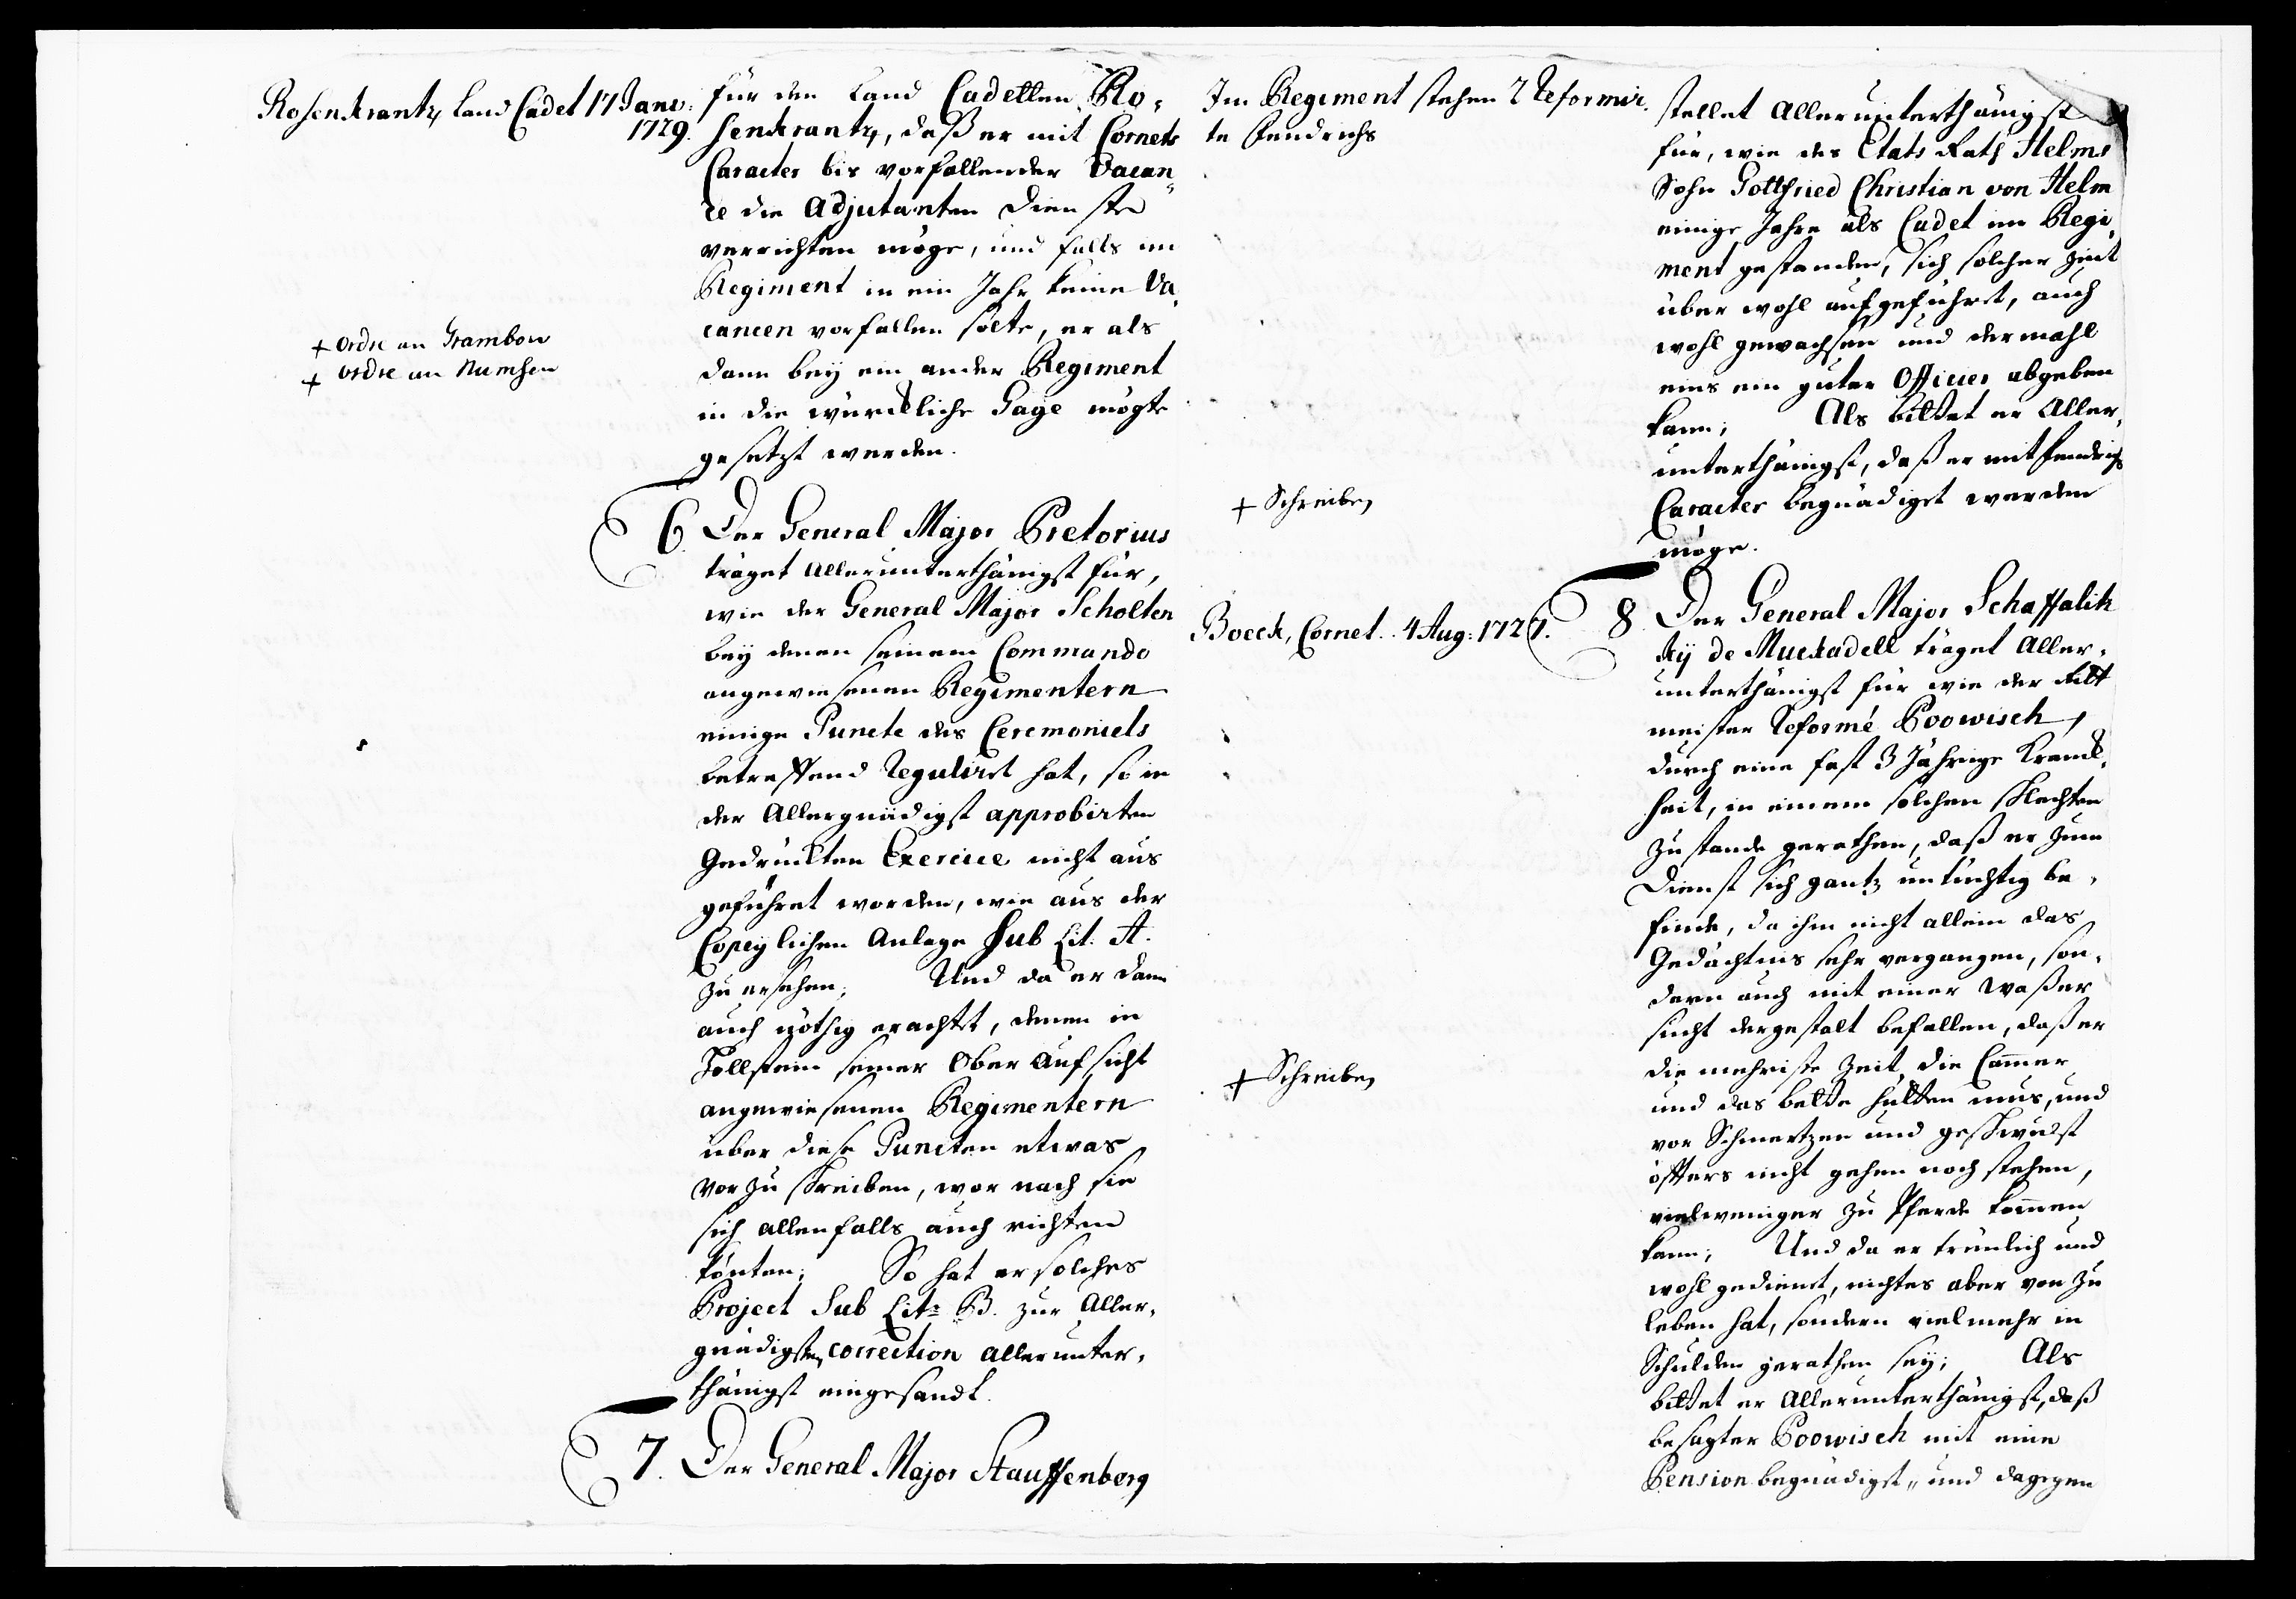 Rosenkrantz Land Cadet 17 Janv:
1729.
+ Ordre an Grambow
+ Ordre an Numsen
für den Land Cadetten Ro-
senkrantz, daß er mit Cornets
Caracter bis vorfallender Vacan-
ce die Adjutanten Dienste
verrichten möge, und falls im
Regiment in ein Jahr keine Va-
cancen vorfallen solte, er als
dann bey ein ander Regiment
in die würckliche Gage mögte
gesetzt werden.
6. Der General Major Pretorius
träget allerunterthänigst für,
wie der General Major Scholten
bey denen seinem Commando
angewiesenen Regimentern
einige Puncte des Ceremoniels
betreffend Reguliret hat, so in
der Allergnädigst approbirten
Gedruckten Exercice nicht aus
geführet worden, wie aus der
Copeylichen Anlage Sub Lit. A.
zu ersehen; Und da er dann
auch nöthig erachtet, denen in
Hollstein seiner Ober Aufsicht
angewiesenen Regimentern
über diese Puncten etwas
vorzuschreiben, wor nach sie
sich allenfalls auch richten
könten; So hat er solches
Project Sub Lit: B. zur Aller-
gnädigsten correction allerunter-
thänigst eingesandt.
7. Der General Major Stauffenberg
Im Regiment stehen 2 Reformir-
te Fendrichs
+ Schreiben
Boeck, Cornet. 4 Aug: 1727.
+ Schreiben
stellet allerunterthänigst
für, wie des Etats Rath Helms
Sohn Gottfried Christian von Helm
einige Jahre als Cadet im Regi-
ment gestanden, sich solcher Zeit
über wohl aufgeführet, auch
wohl gewachsen und dermahl
eins ein guter Officier abgeben
kann; Als bittet er Aller-
unterthänigst, daß er mit Fendrichs
Caracter begnädiget werden
möge.
8. Der General Major Schaffalitz
ky de Muckadell träget Aller-
unterthänigst für wie der Ritt
meister Reformé Poowisch,
durch eine fast 3 Jährige Kranck-
heit, in einem solchen schlechten
Zustande gerathen, daß er zum
Dienst sich gantz untüchtig be-
finde, da ihm nicht allein das
Gedächtnis sehr vergangen, son-
dern auch mit einer Waßer
sucht dergestalt befallen, daß er
die mehriste Zeit die Cammer
und das Bette hütten mus, und
vor Schmertzen und geschwulst
öffters nicht gehen noch stehen,
vielweniger zu Pferde kommen
kann; Und da er treulich und
wohl gedienet, nichtes aber von zu
leben hat, sondern vielmehr in
Schulden gerathen sey; Als
bittet er Allerunterthänigst, daß
besagter Poowisch mit eine
Pension begnädigt, und dagegen